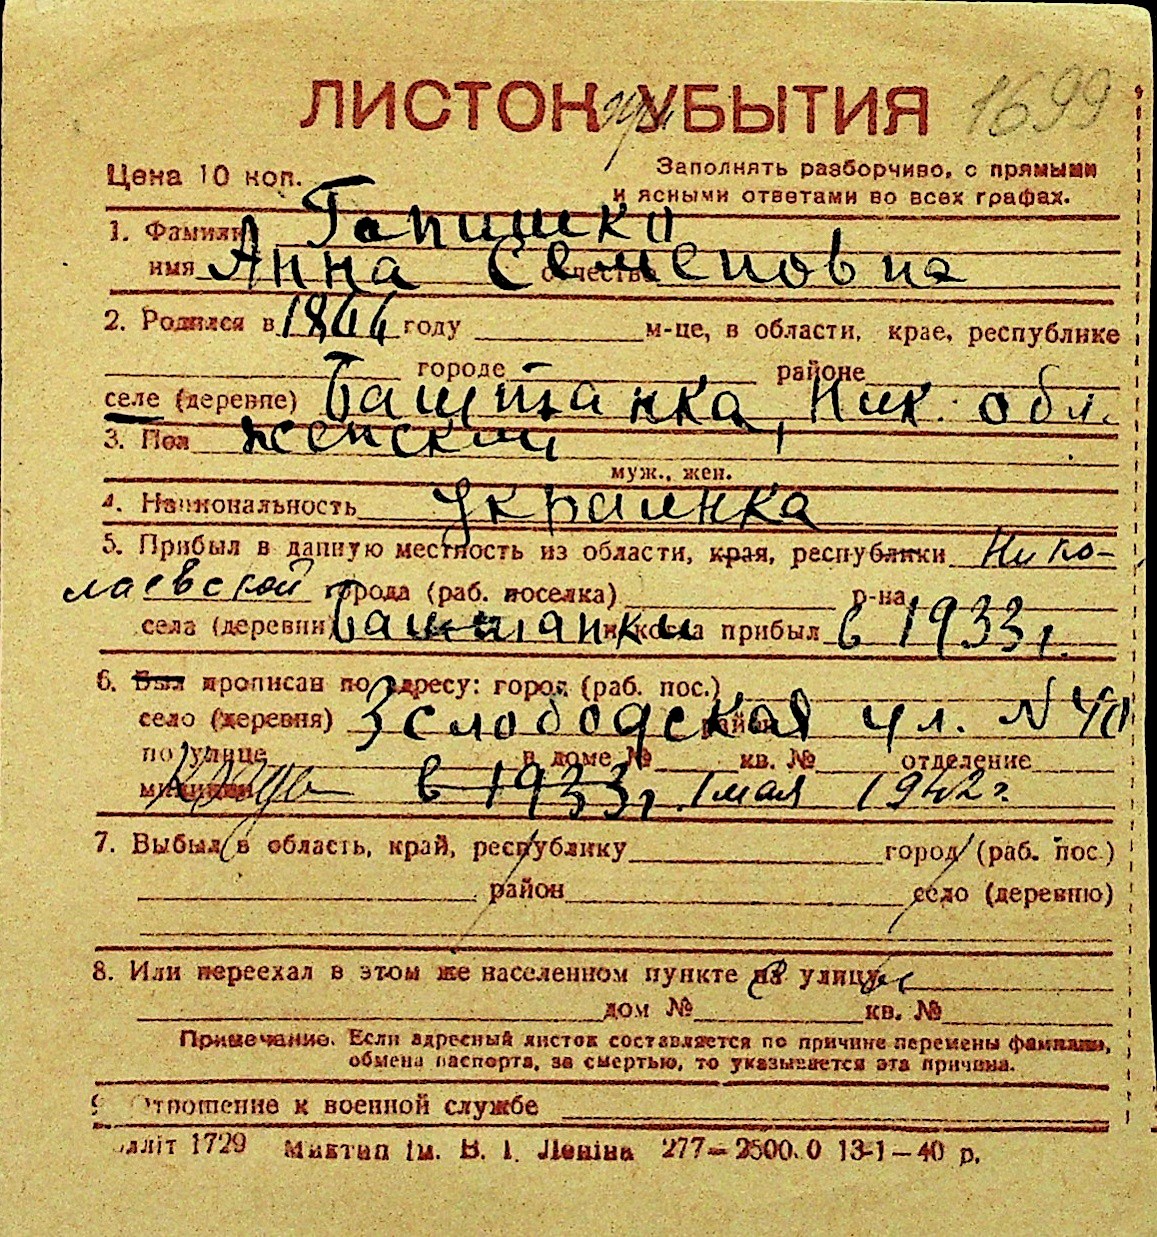 ЛИСТОК УБЫТИЯ 1699
Цена 10 коп.
Заполнять разборчиво, с прямыми
и ясными ответами во всех графах.
1. Фамилия Гапишко
имя Анна отчество Семеновна
2. Родился в году м-це, в области, крае, республике
городе районе
селе (деревне) Баштанка, Ник. обл.
3. Пол женский
муж., жен.
4. Национальность украинка
5. Прибыл в данную местность из области, края, республики Нико-
лаевской города (раб. поселка) р-на
села (деревни) Баштанки и когда прибыл в 1933 г.
6. Был прописан по адресу: город (раб. пос.)
село (деревня) 3 Слободская район ул. N 40
по улице в доме № кв. № отделение
милиции в 1933 г. 1 мая 1942 г.
7. Выбыл в область, край, республику город (раб. пос.)
район село (деревню)
8. Или переехал в этом же населенном пункте на улицу
дом № кв. №
Примечание. Если адресный листок составляется по причине перемены фамилии,
обмена паспорта, за смертью, то указывается эта причина.
9. Отношение к военной службе
1729 Миктип ім. В. І. Леніна 277—2500.0 13-1—40 р.